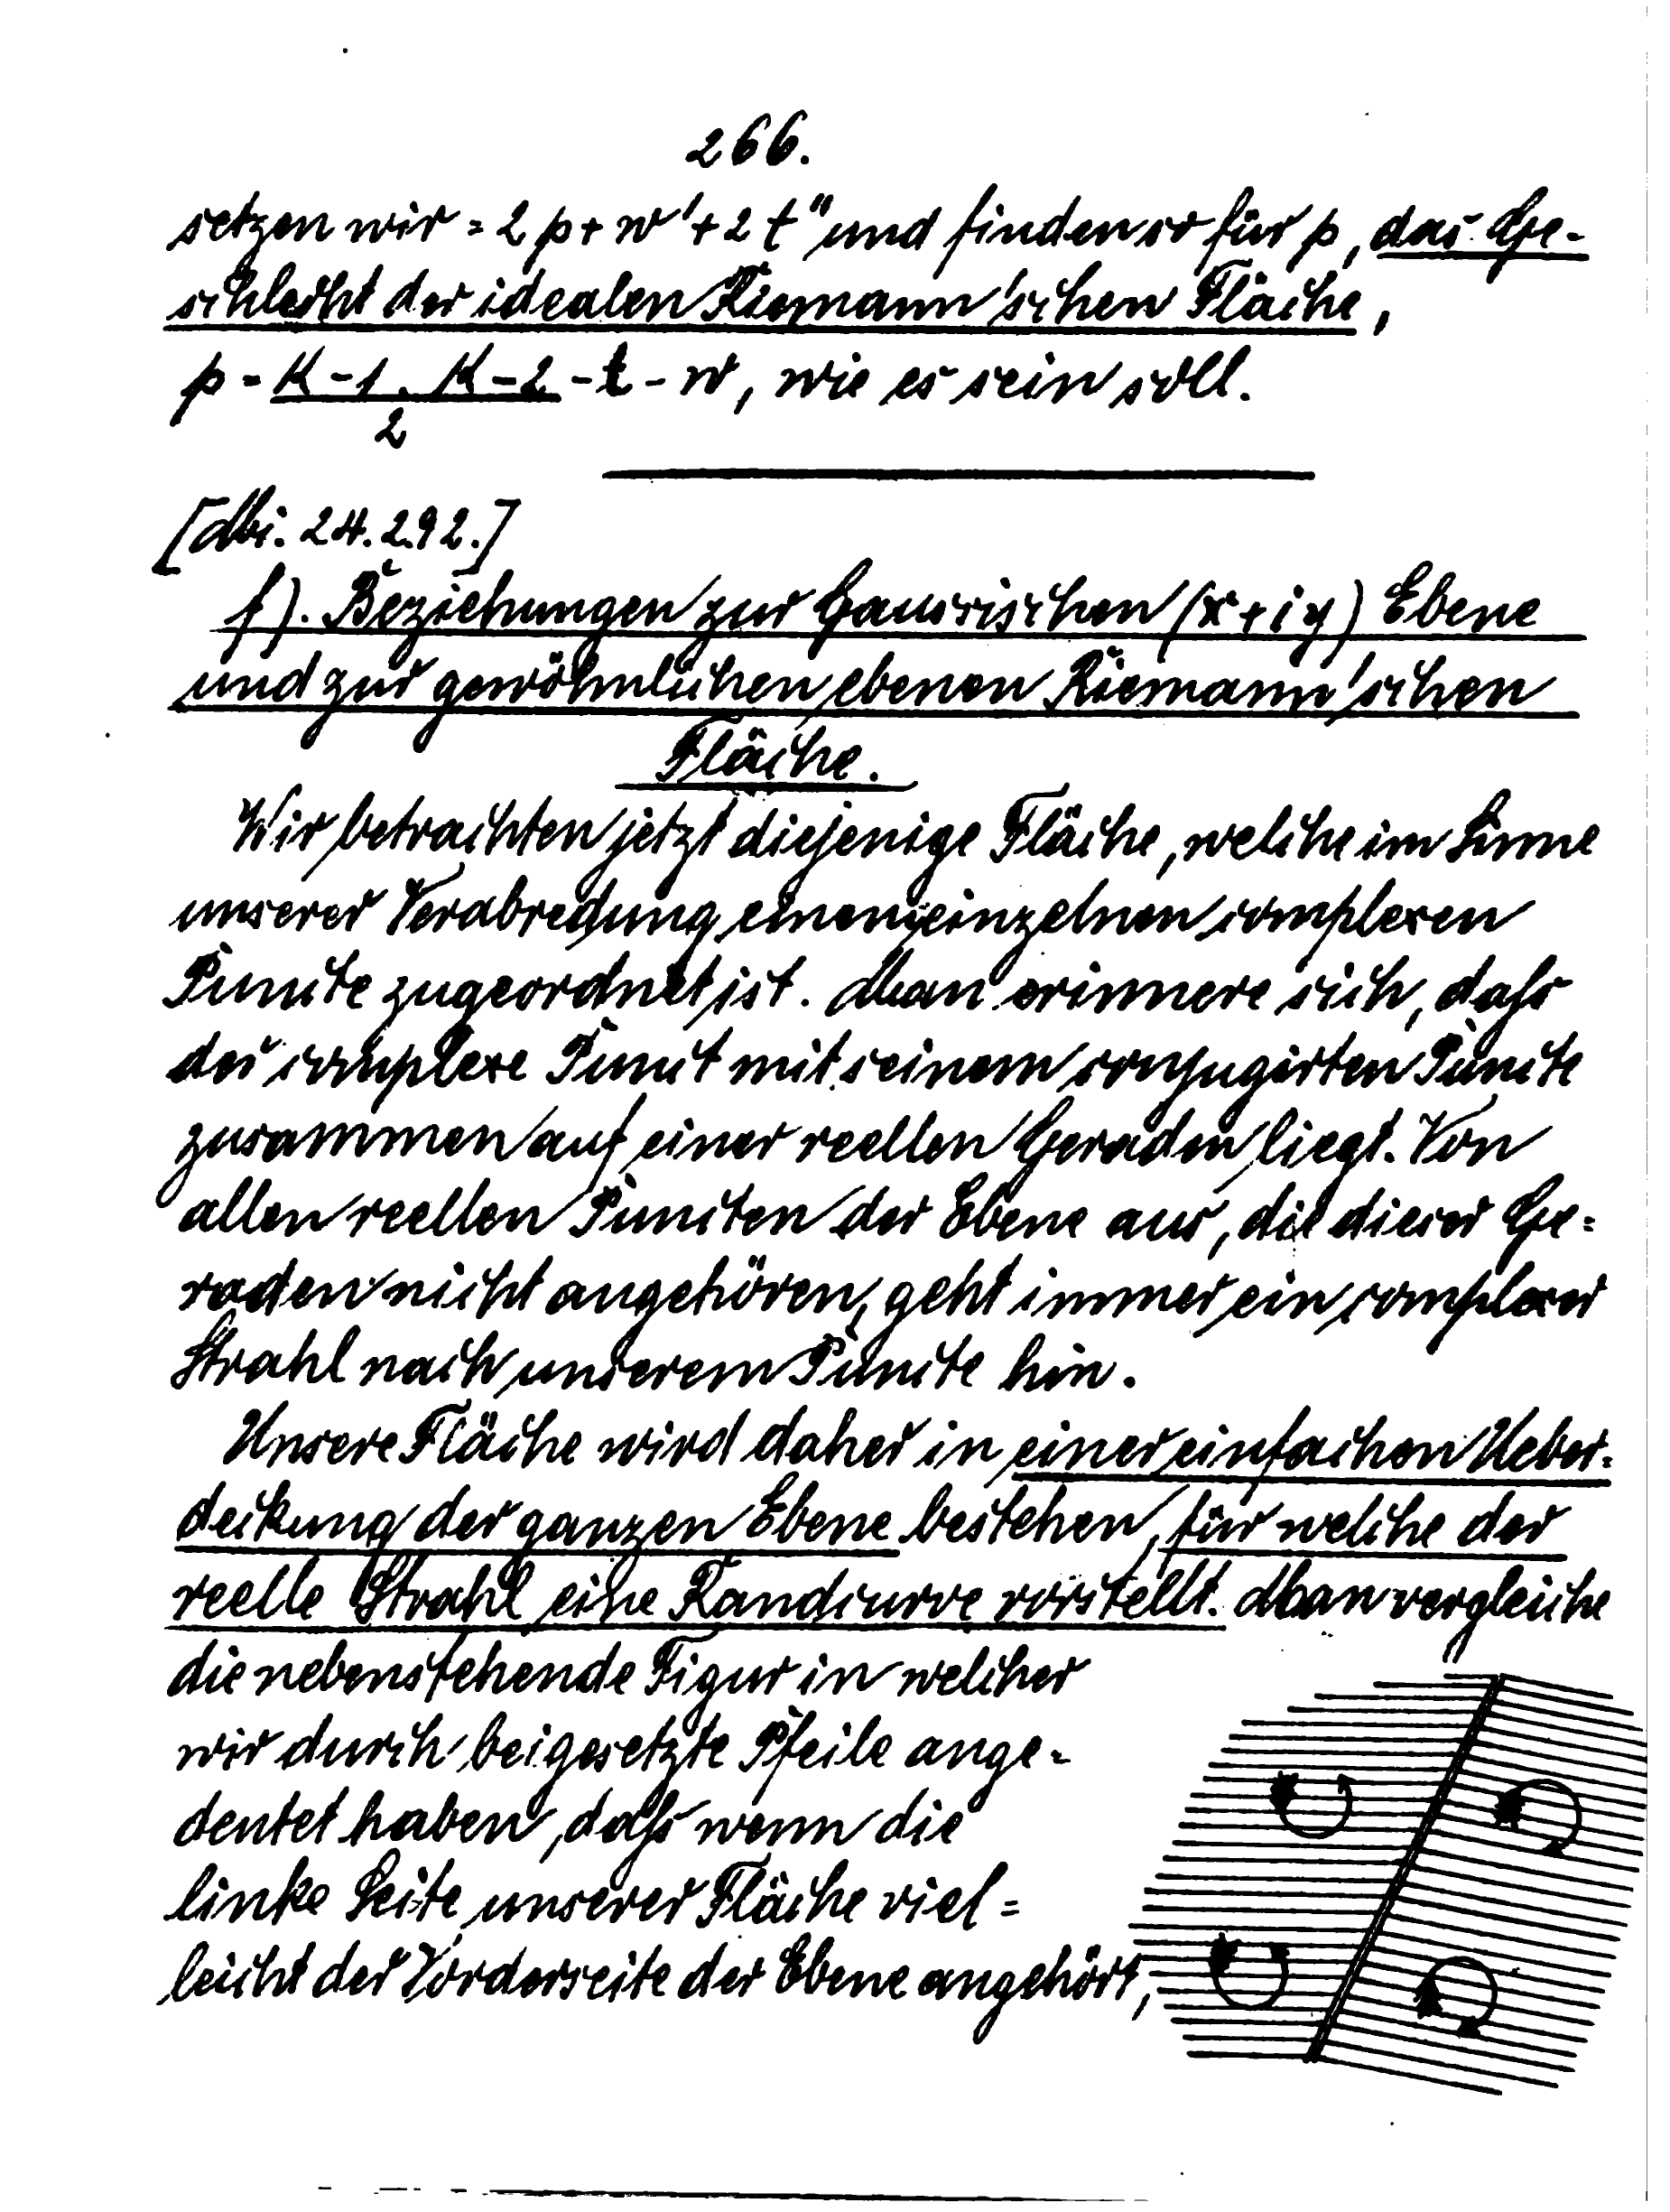 266.
setzen wir = 2p + w' + 2t" und finden so für p, das Ge-
schlecht der idealen Riemann'schen Fläche,
p = K-1. K-2 / 2 - t - w, wie es sein soll.
[Mi. 24.2.92.]
f). Beziehungen zur Gaussischen (x+iy) Ebene
und zur gewöhnlichen ebenen Riemann'schen
Fläche.
Wir betrachten jetzt diejenige Fläche, welche im Sinne
unserer Verabredung einem einzelnen complexen
Puncte zugeordnet ist. Man erinnere sich, dass
der complexe Punct mit seinem conjugirten Puncte
zusammen auf einer reellen Geraden liegt. Von
allen reellen Puncten der Ebene aus, die dieser Ge=
raden nicht angehören, geht immer ein complexer
Strahl nach unserem Puncte hin.
Unsere Fläche wird daher in einer einfachen Ueber=
deckung der ganzen Ebene bestehen, für welche der
reelle Strahl eine Randcurve vorstellt. Man vergleiche
die nebenstehende Figur in welcher
wir durch beigesetzte Pfeile ange-
deutet haben, dass wenn die
linke Seite unserer Fläche viel=
leicht der Vorderseite der Ebene angehört,